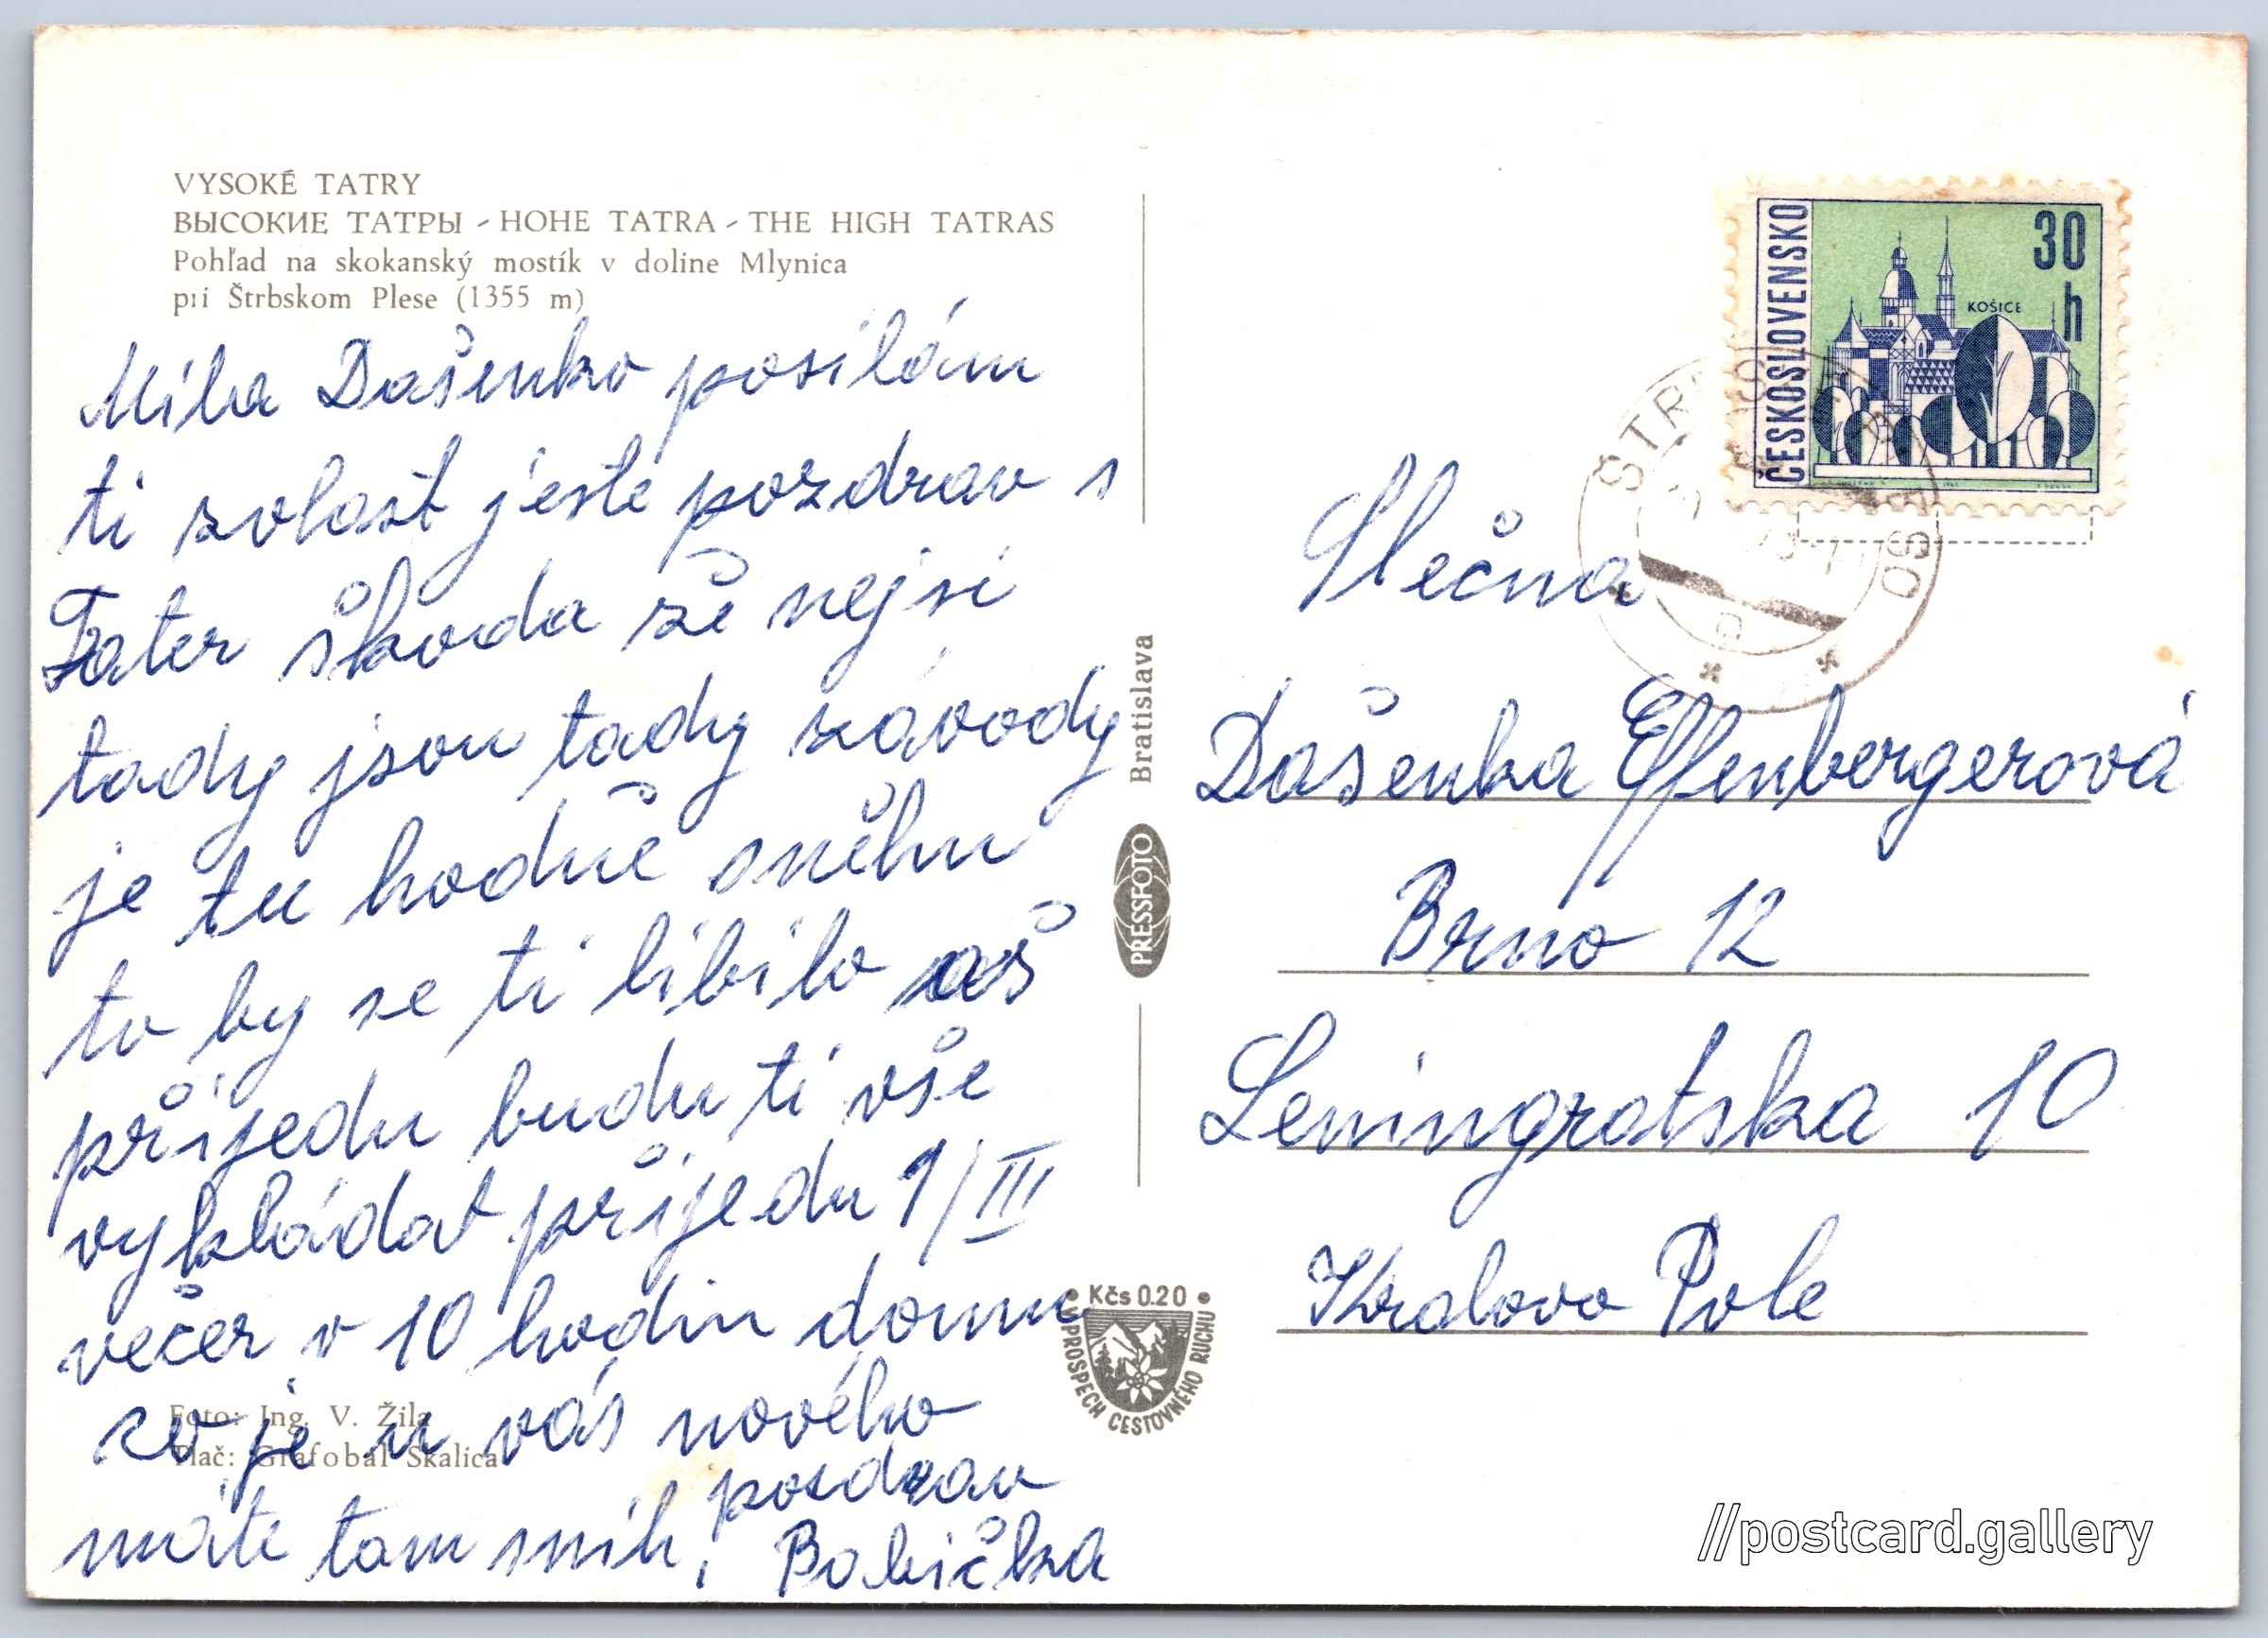 VYSOKÉ TATRY
ВЫСОКИЕ ТАТРЫ - HOHE TATRA - THE HIGH TATRAS
Pohľad na skokanský mostík v doline Mlynica
pri Štrbskom Plese (1355 m)
Míla Dašenko posílám
ti zvlašt ješte pozdrav s
Tater škoda že nejsi
tady jsou tady závody
je tu hodně sněhu
to by se ti líbilo aš
přijedu budu ti vše
vykládat přijedu 1/III
večer v 10 hodin domu
co je u vás nového
máte tam sníh,
pozdrav
Babička
Foto: Ing. V. Žila
Tlač: Grafobal Skalica
Bratislava
PRESSFOTO
Kčs 0.20
V PROSPECH CESTOVNÉHO RUCHU
ČESKOSLOVENSKO
30
h
KOŠICE
Slečna
Dašenka Effenbergerová
Brno 12
Leningratska 10
Kralovo Pole
//postcard.gallery